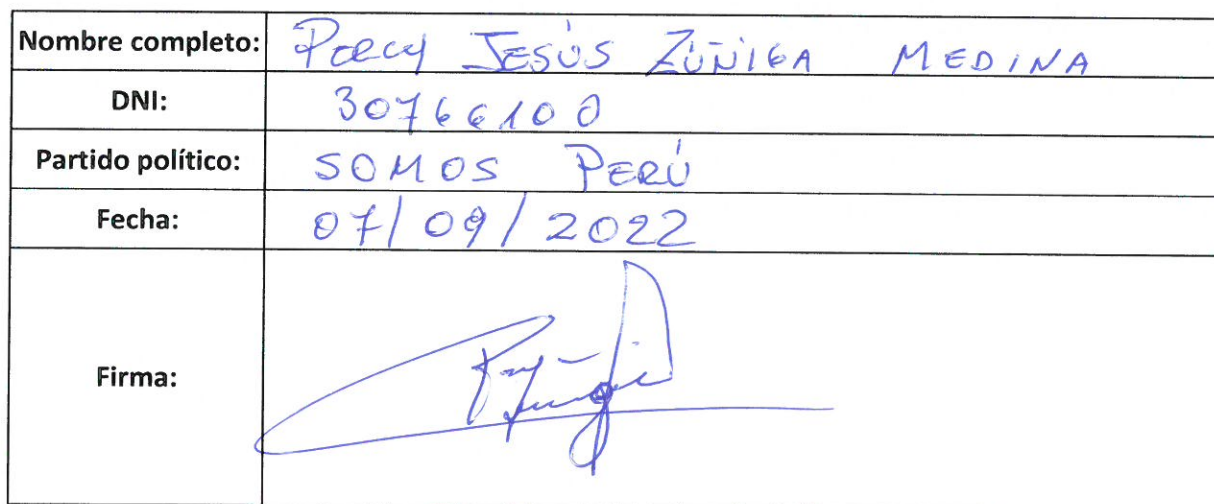 Nombre completo: Percy Jesús Zúñiga Medina
DNI: 30766100
Partido político: SOMOS PERÚ
Fecha: 07/09/2022
Firma: